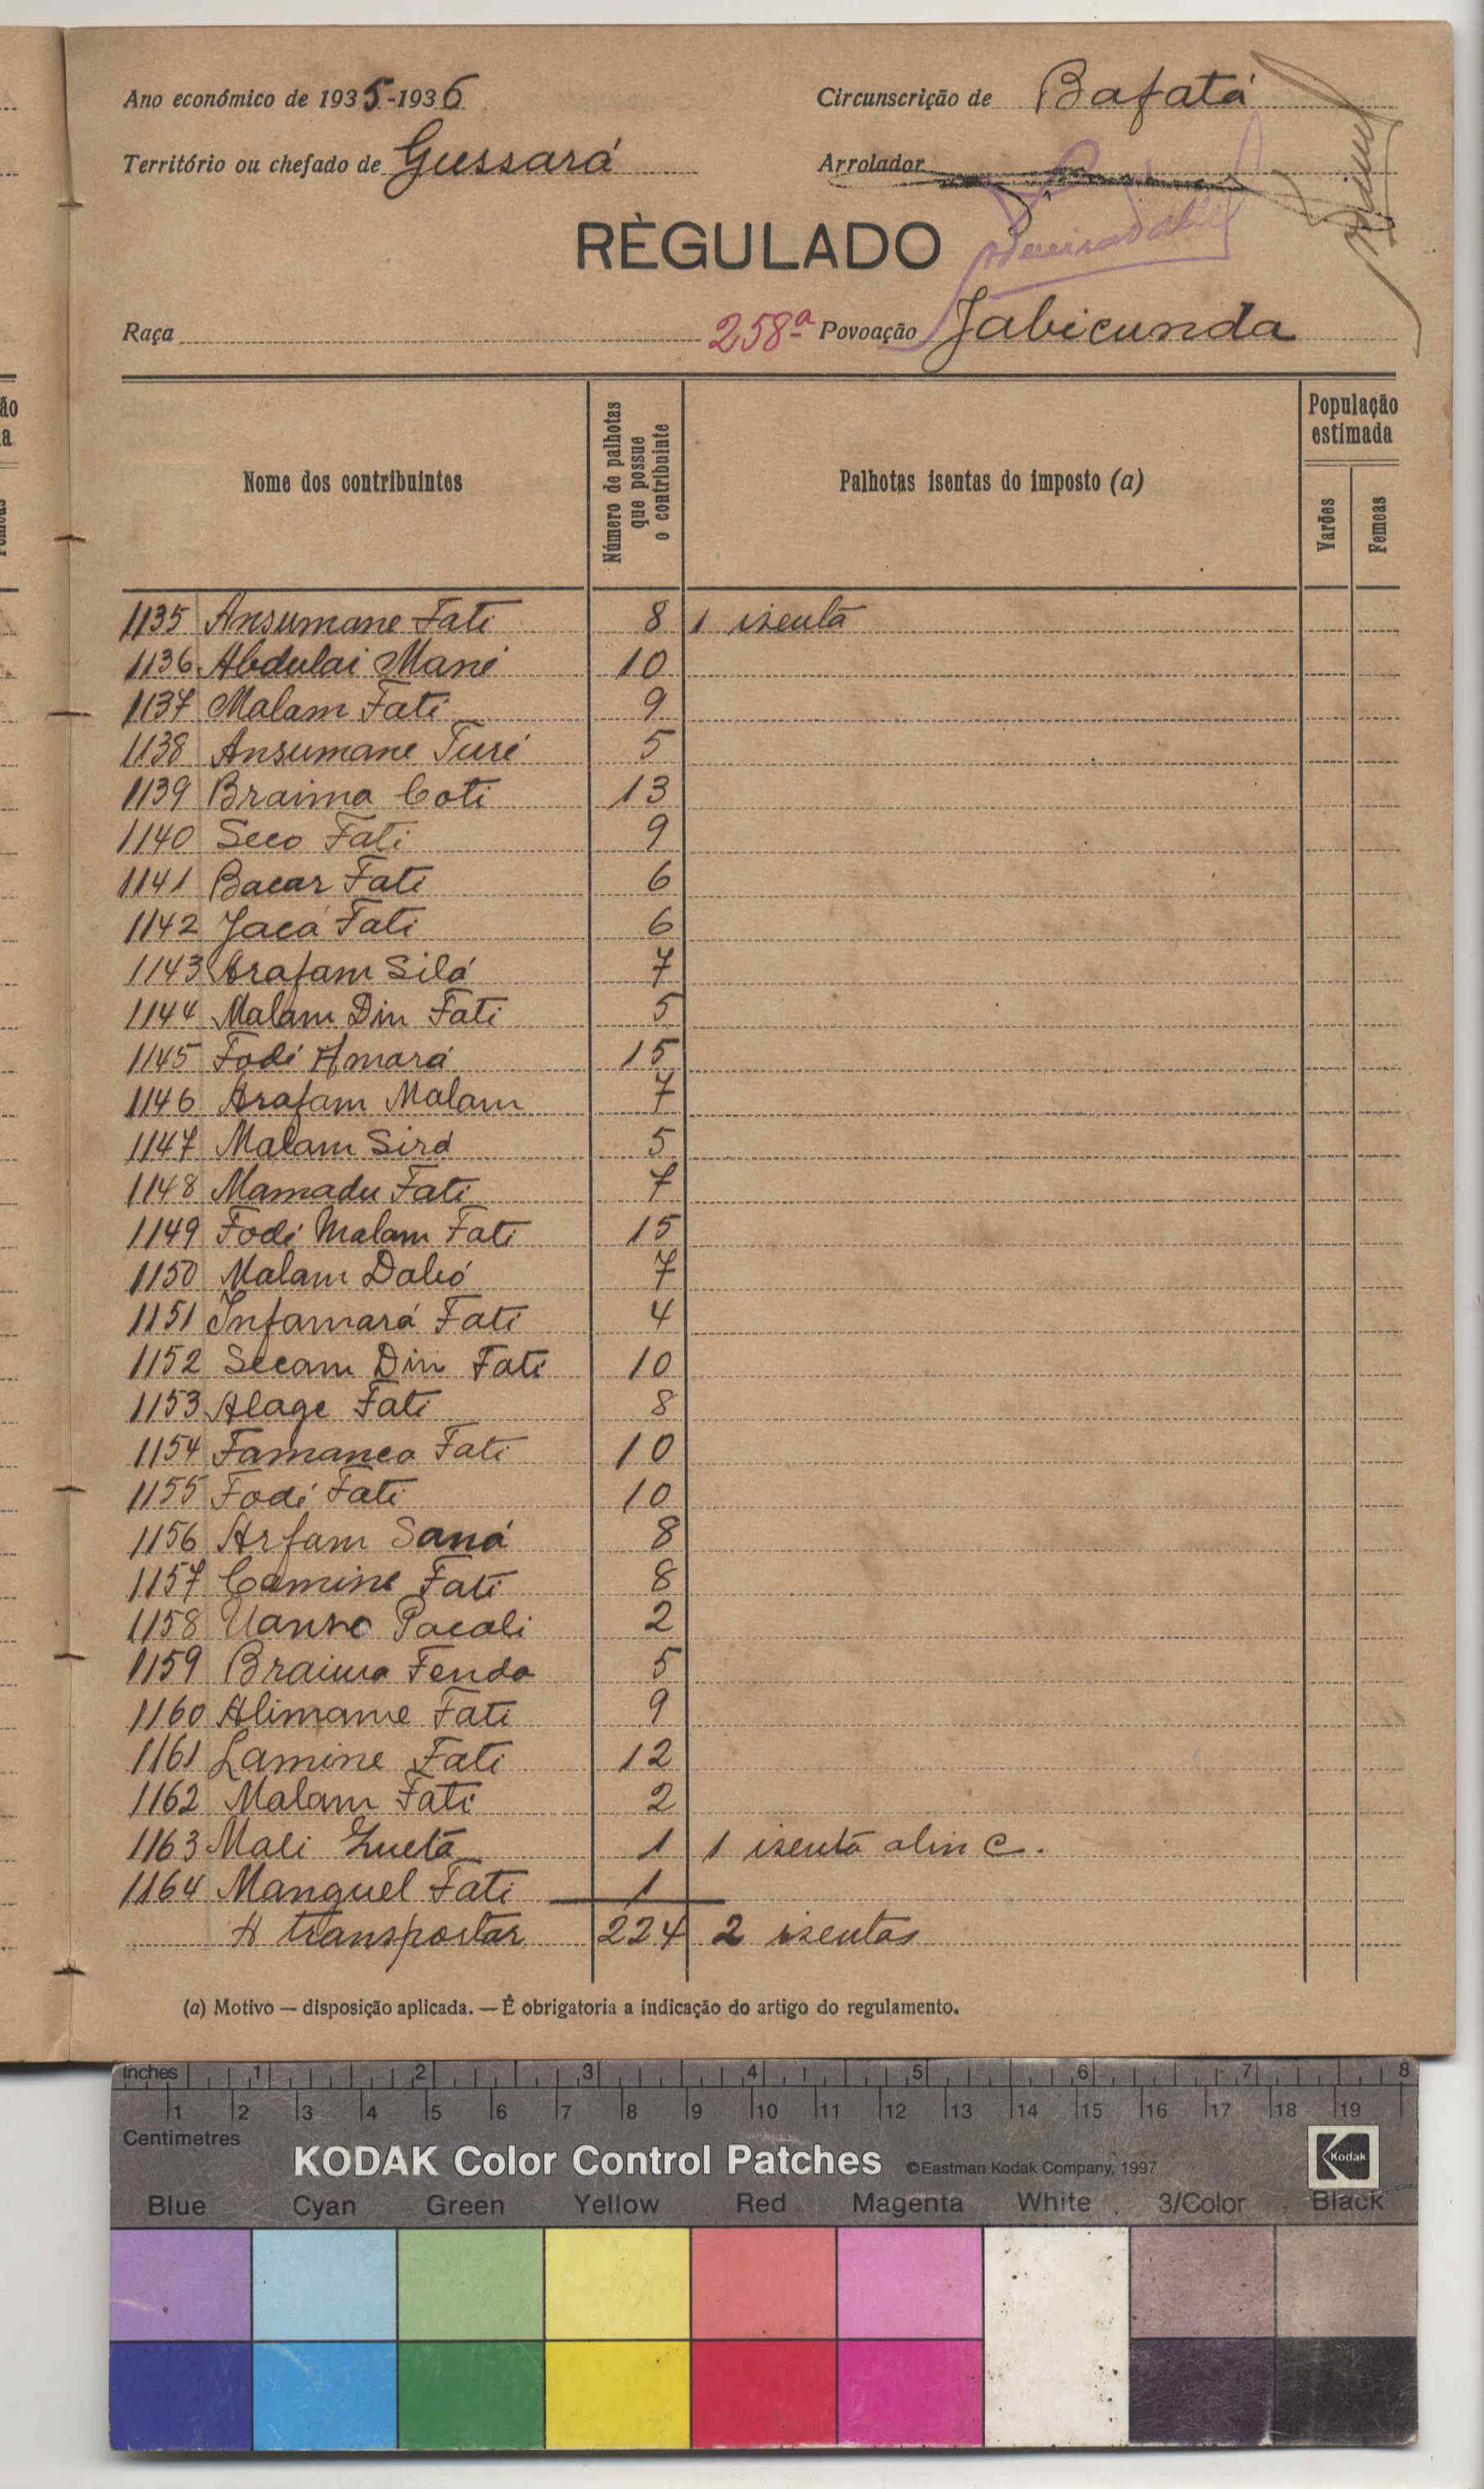 Ano económico de 1935-1936
Circunscrição de Bafatá
Território ou chefado de Gussará
Arrolador
RÈGULADO
Raça
258ª Povoação Jabicunda
Nome dos contribuintes
Número de palhotas que possue o contribuinte
Palhotas isentas do imposto (a)
População estimada
Varões
Femeas
1135 Ansumane Fati 8 1 isenta
1136 Abdulai Mané 10
1137 Malam Fati 9
1138 Ansumane Turé 5
1139 Braima Coti 13
1140 Seco Fati 9
1141 Bacar Fati 6
1142 Jacá Fati 6
1143 Arafam Silá 7
1144 Malam Din Fati 5
1145 Fodé Amará 15
1146 Arafam Malam 7
1147 Malam Sirá 5
1148 Mamadu Fati 7
1149 Fodé Malam Fati 15
1150 Malam Dabó 7
1151 Infamará Fati 4
1152 Secam Din Fati 10
1153 Alage Fati 8
1154 Famanca Fati 10
1155 Fodé Fati 10
1156 Arfam Saná 8
1157 Camine Fati 8
1158 Uanso Pacali 2
1159 Braima Fenda 5
1160 Alimame Fati 9
1161 Lamine Fati 12
1162 Malam Fati 2
1163 Mali 1 1 isenta alin C.
1164 Manguel Fati 1
A transportar 224 2 isentas
(a) Motivo — disposição aplicada. — É obrigatoria a indicação do artigo do regulamento.
Inches 1 2 3 4 5 6 7 8
1 2 3 4 5 6 7 8 9 10 11 12 13 14 15 16 17 18 19
Centimetres
KODAK Color Control Patches ©Eastman Kodak Company, 1997 Kodak
Blue Cyan Green Yellow Red Magenta White 3/Color Black